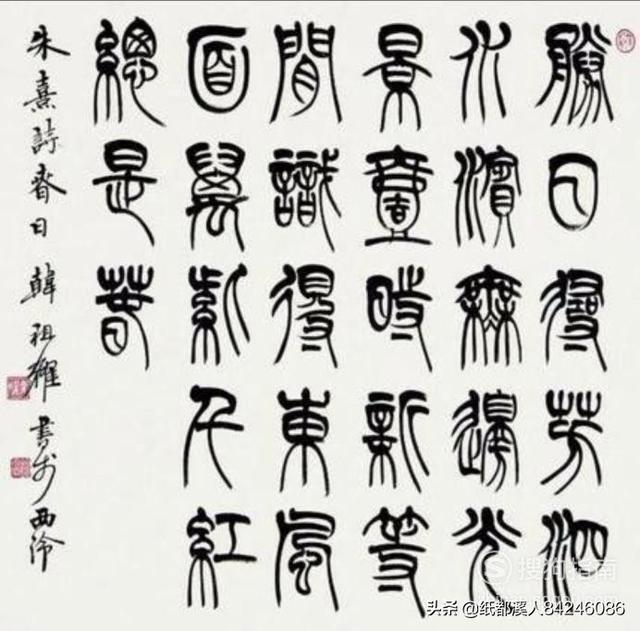 勝日尋芳泗
水濱無邊光
景壹時新等
閒識得東風
面萬紫千紅
總是春
朱熹詩春日 韓祖耀書於西泠
搜狗指南
头条 @纸都溪人84246086